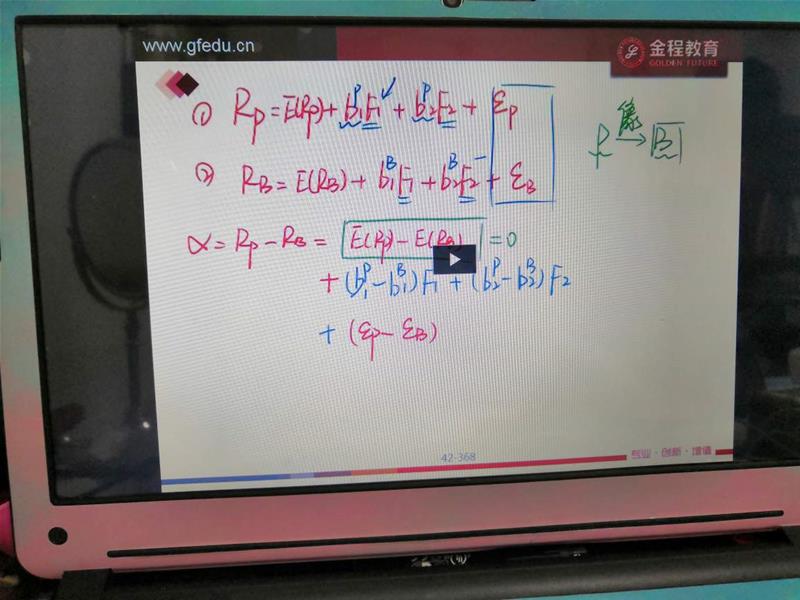 www.gfedu.cn
金程教育
GOLDEN FUTURE
① Rp = E(Rp) + b₁ᴾF₁ + b₂ᴾF₂ + εp
② RB = E(RB) + b₁ᴮF₁ + b₂ᴮF₂ + εB
P → B
α = Rp - RB = E(Rp) - E(RB) = 0
+ (b₁ᴾ - b₁ᴮ)F₁ + (b₂ᴾ - b₂ᴮ)F₂
+ (εp - εB)
42-368
专业·创新·增值